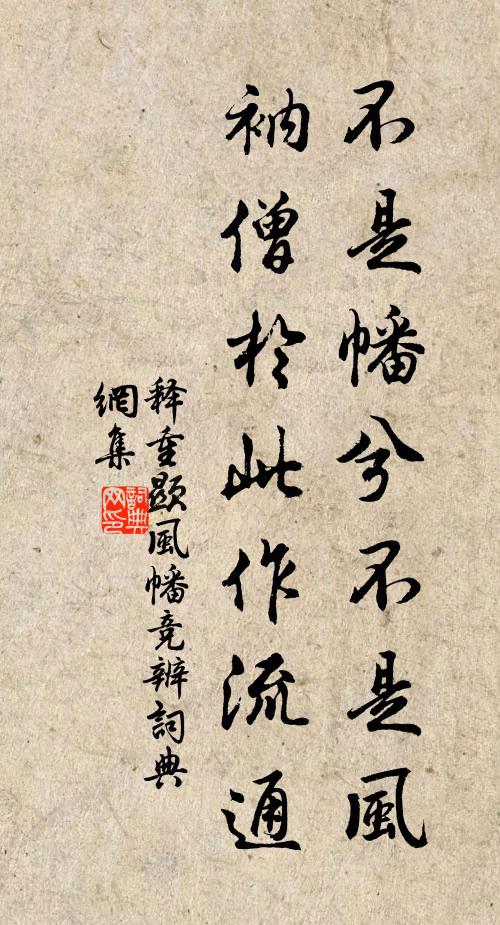 不是幡兮不是風
衲僧於此作流通
释重顯風幡竞辨詞典
網集
詞典網印